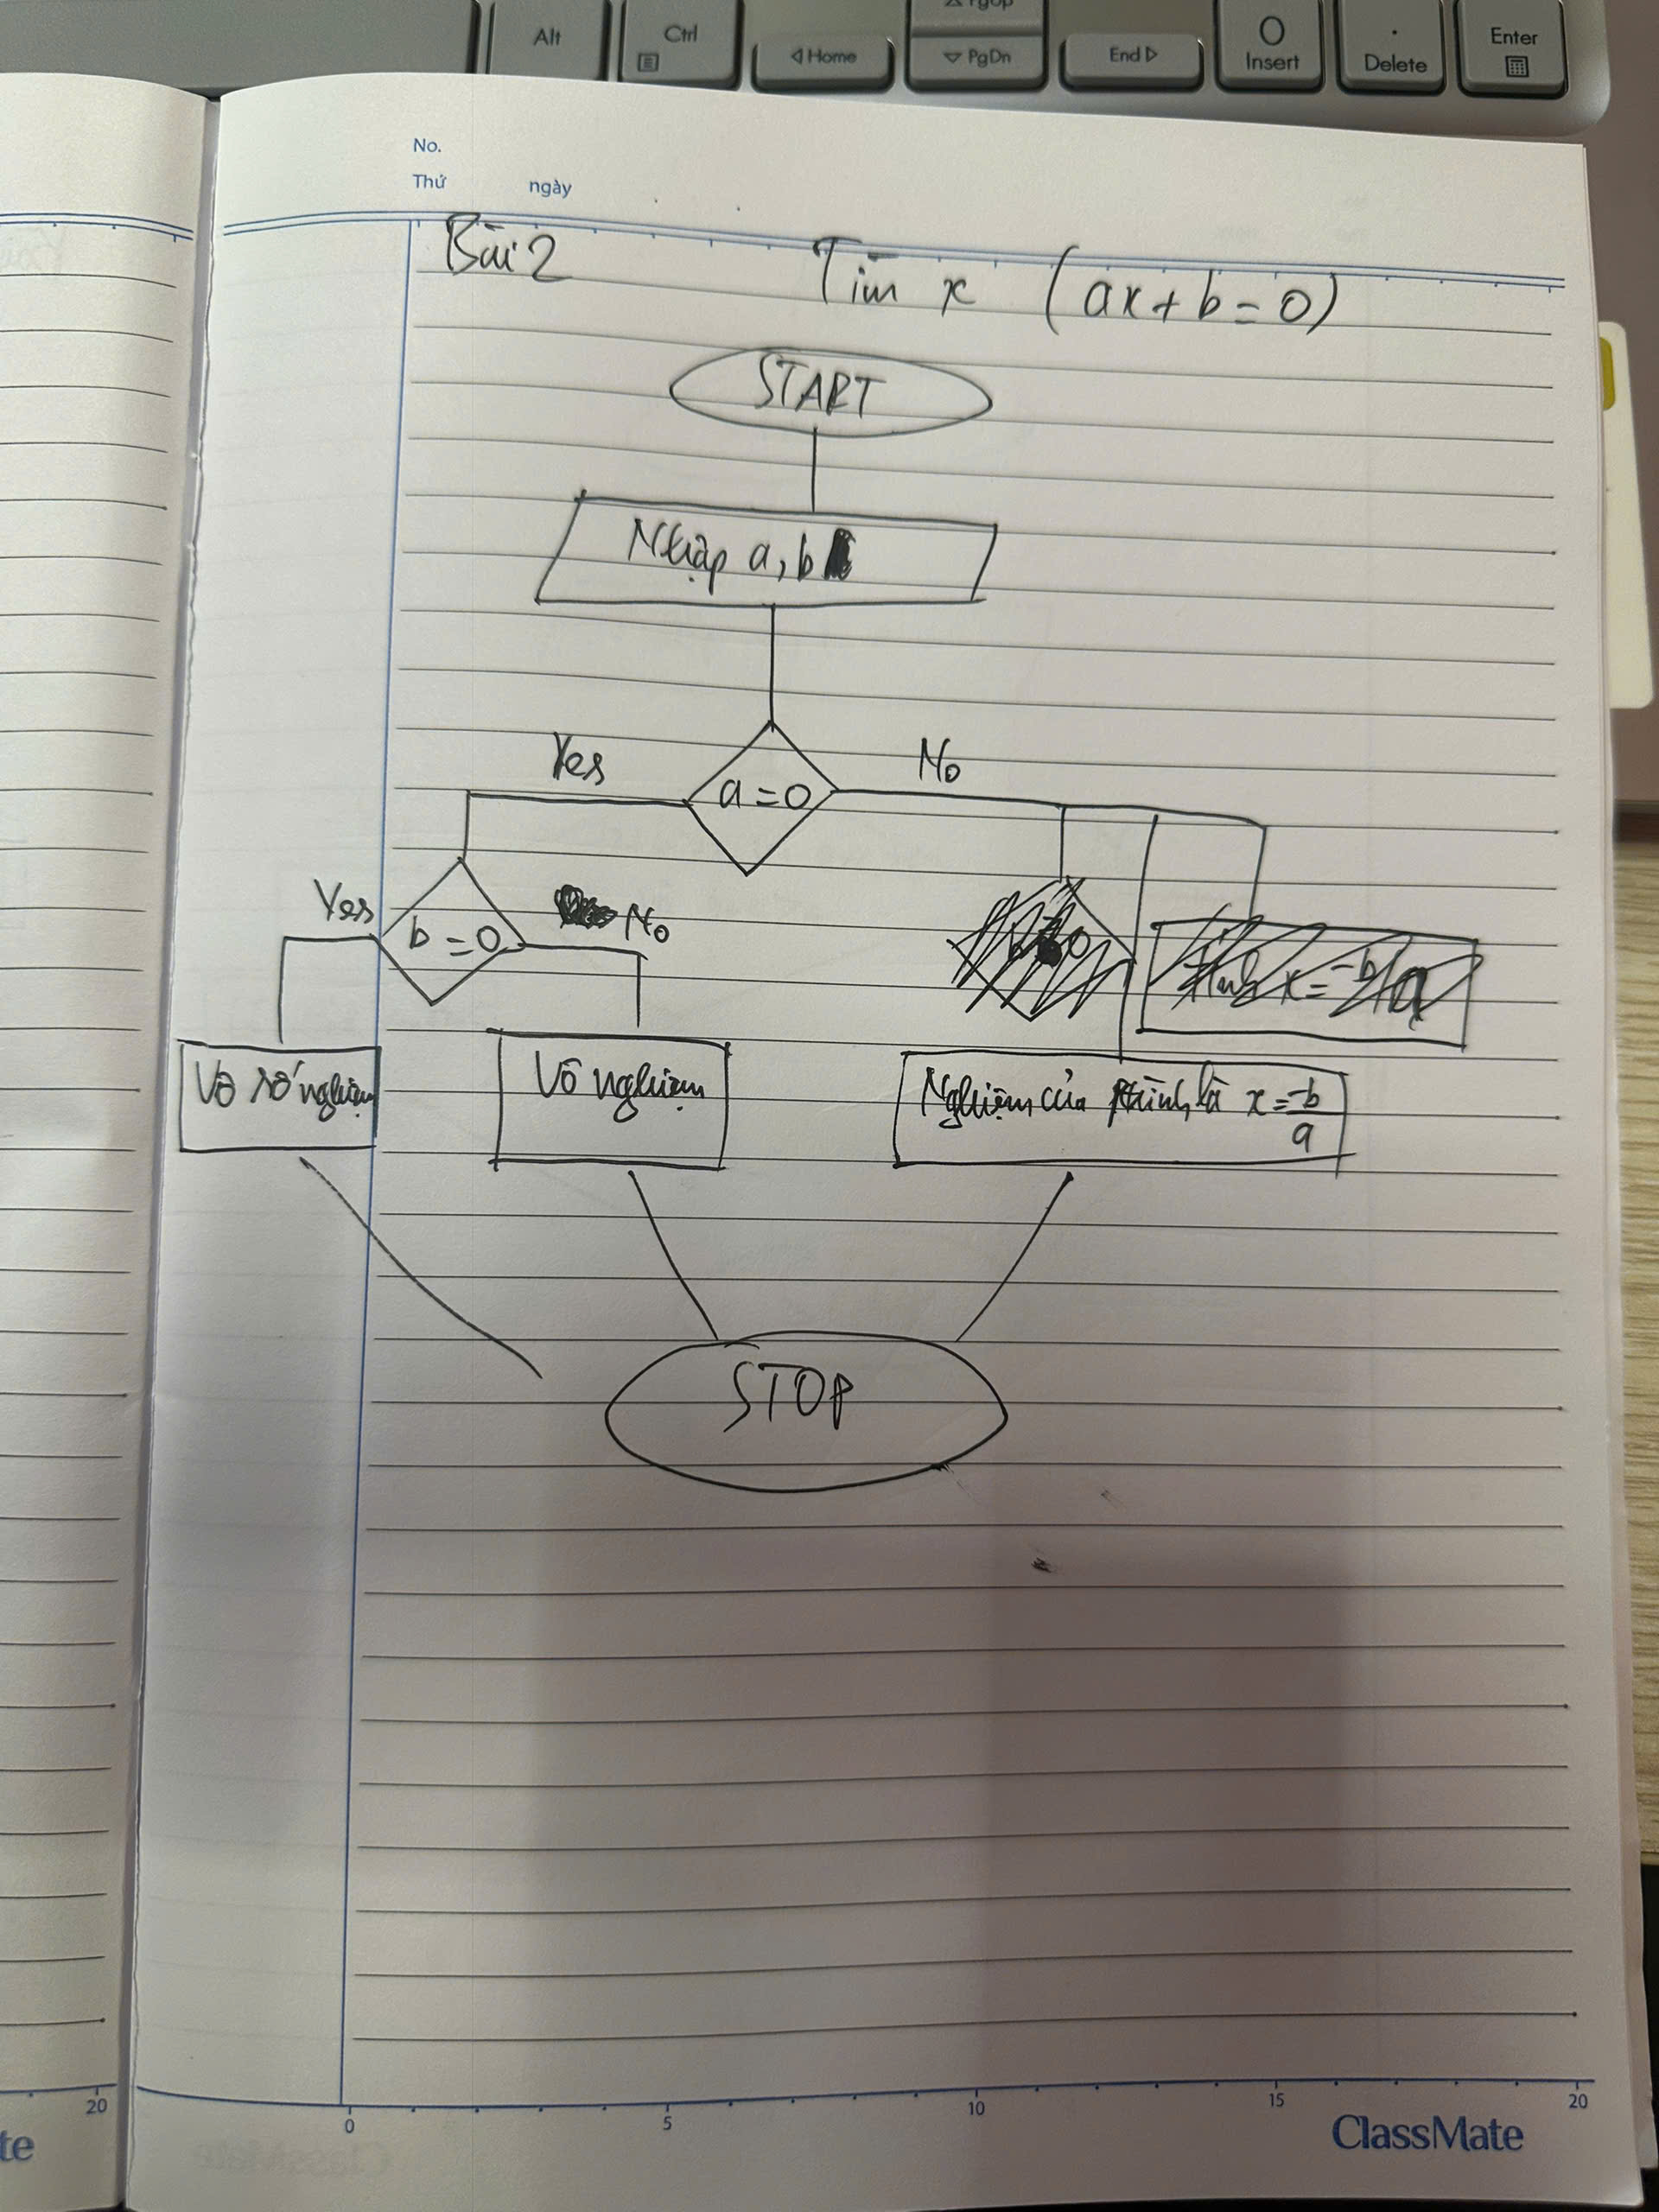 Alt
Ctrl
Home
PgUp
PgDn
End
0
Insert
.
Delete
Enter
No.
Thứ ngày
Bài 2
Tìm x (ax+b=0)
START
Nhập a, b
a=0
Yes
No
b=0
Yes
No
x = -b/a
Vô số nghiệm
Vô nghiệm
Nghiệm của là x = -b/a
STOP
0 5 10 15 20
ClassMate
20
te